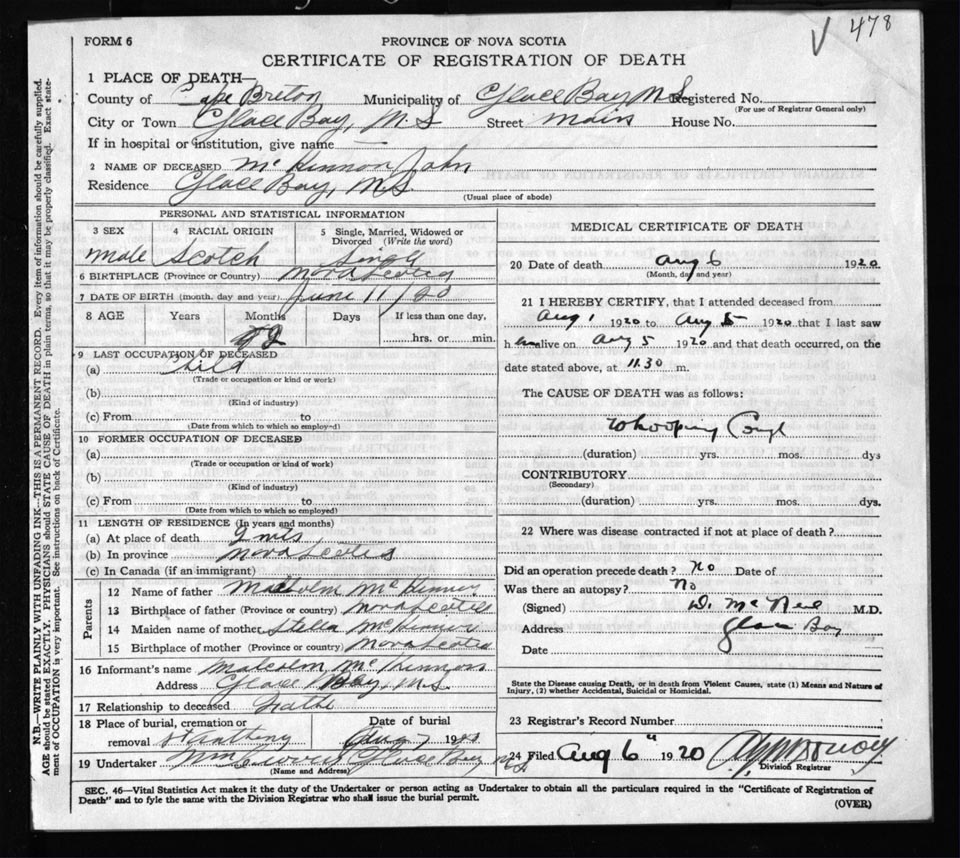 478
FORM 6
PROVINCE OF NOVA SCOTIA
CERTIFICATE OF REGISTRATION OF DEATH
1 PLACE OF DEATH—
County of Cape Breton Municipality of Glace Bay N.S Registered No.
(For use of Registrar General only)
City or Town Glace Bay, N.S Street Main House No.
If in hospital or institution, give name
2 NAME OF DECEASED McKinnon John
Residence Glace Bay, N.S.
(Usual place of abode)
PERSONAL AND STATISTICAL INFORMATION
3 SEX 4 RACIAL ORIGIN 5 Single, Married, Widowed or Divorced (Write the word)
Male Scotch Single
6 BIRTHPLACE (Province or Country) Nova Scotia
7 DATE OF BIRTH (month, day and year) June 11/
8 AGE Years Months Days If less than one day,
hrs. or min.
9 LAST OCCUPATION OF DECEASED
(a) Child
(Trade or occupation or kind or work)
(b)
(Kind of industry)
(c) From to
(Date from which to which so employed)
10 FORMER OCCUPATION OF DECEASED
(a)
(Trade or occupation or kind or work)
(b)
(Kind of industry)
(c) From to
(Date from which to which so employed)
11 LENGTH OF RESIDENCE (In years and months)
(a) At place of death
(b) In province Nova Scotia
(c) In Canada (if an immigrant)
Parents
12 Name of father Malcolm McKinnon
13 Birthplace of father (Province or country) Nova Scotia
14 Maiden name of mother Stella McKinnon
15 Birthplace of mother (Province or country) Nova Scotia
16 Informant's name Malcolm McKinnon
Address Glace Bay, N.S.
17 Relationship to deceased Father
18 Place of burial, cremation or Date of burial
removal Aug 7 19
19 Undertaker Glace Bay N.S
(Name and Address)
MEDICAL CERTIFICATE OF DEATH
20 Date of death Aug 6 1920
(Month, day and year)
21 I HEREBY CERTIFY, that I attended deceased from
Aug 1 1920 to Aug 5 1920 that I last saw
h im alive on Aug 5 1920 and that death occurred, on the
date stated above, at 11.30 m.
The CAUSE OF DEATH was as follows:
Whooping Cough
(duration) yrs. mos. dys
CONTRIBUTORY
(Secondary)
(duration) yrs. mos. dys.
22 Where was disease contracted if not at place of death?
Did an operation precede death? No Date of
Was there an autopsy? No
(Signed) D. McNeil M.D.
Address Glace Bay
Date
State the Disease causing Death, or in death from Violent Causes, state (1) Means and Nature of
Injury, (2) whether Accidental, Suicidal or Homicidal.
23 Registrar's Record Number
24 Filed Aug 6" 1920
Division Registrar
SEC. 46—Vital Statistics Act makes it the duty of the Undertaker or person acting as Undertaker to obtain all the particulars required in the "Certificate of Registration of
Death" and to fyle the same with the Division Registrar who shall issue the burial permit.
(OVER)
N.B.—WRITE PLAINLY WITH UNFADING INK—THIS IS A PERMANENT RECORD. Every item of information should be carefully supplied.
AGE should be stated EXACTLY. PHYSICIANS should STATE CAUSE OF DEATH in plain terms, so that it may be properly classified. Exact state-
ment of OCCUPATION is very important. See instructions on back of Certificate.